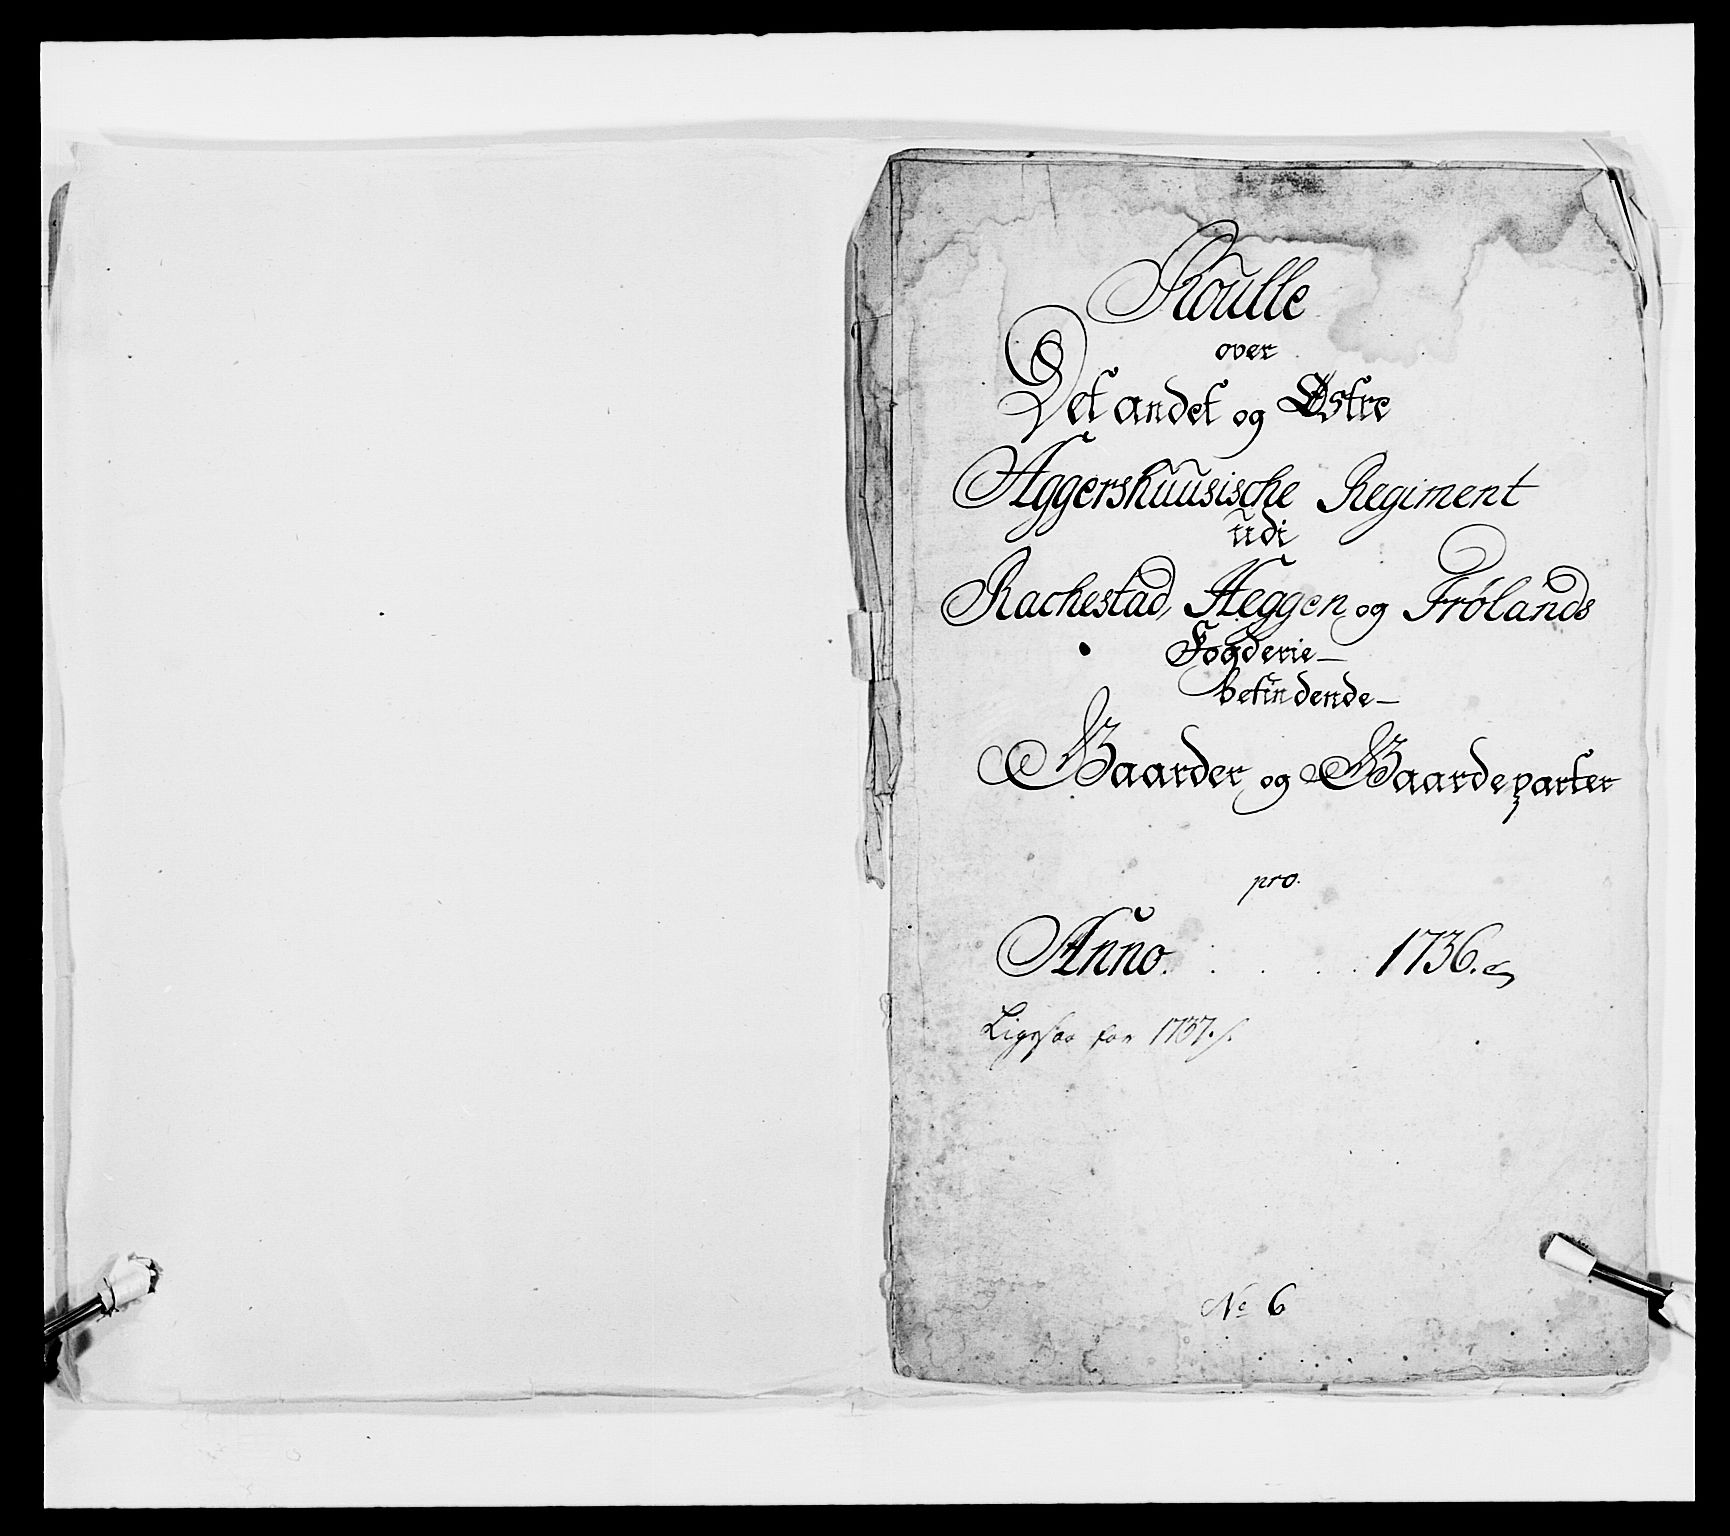 Roulle
over
Det andet og Østre
Aggershuusische Regiment
udi
Rachestad, Heggen og Frølands
Fogderie
befindende
Gaarder og Gaardeparter
pro.
Anno. . . . . 1736.
Ligesaa for 1737./.
No 6